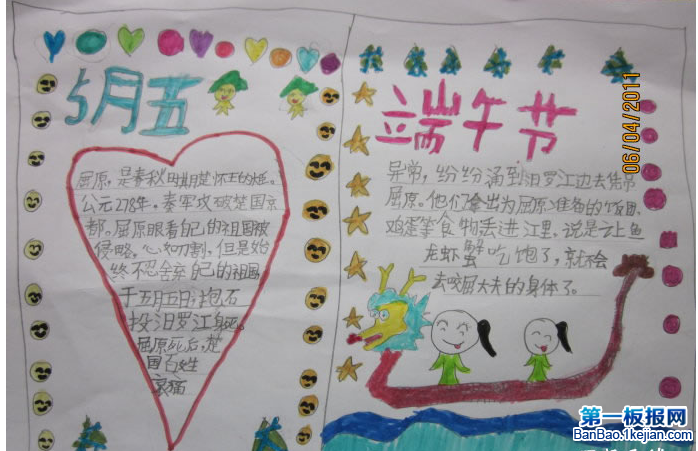 5月五
屈原，是春秋时期楚怀王的大臣。
公元278年，秦军攻破楚国京
都。屈原眼看自己的祖国被
侵略，心如刀割，但是始
终不忍舍弃自己的祖国，
于五月五日，抱石
投汨罗江身死。
屈原死后，楚
国百姓
哀痛
端午节
异常，纷纷涌到汨罗江边去凭吊
屈原。他们拿出为屈原准备的饭团、
鸡蛋等食物丢进江里，说是让鱼
龙虾蟹吃饱了，就不会
去咬屈大夫的身体了。
06/04/2011
第一板报网
BanBao.1kejian.com